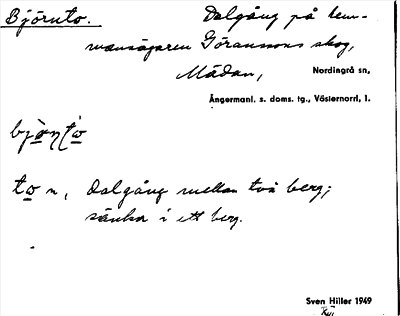 Björnto. Dalgång på hem-
mansägaren Göranssons skog,
Mädan, Nordingrå sn,
Ångermanl. s. doms. tg., Västernorrl. l.
to n, Dalgång mellan två berg;
sänka i ett berg.
Sven Hiller 1949